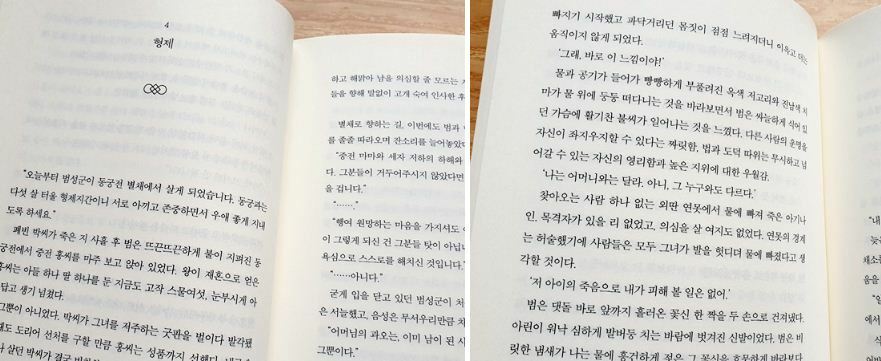 4
형제
"오늘부터 범성군이 동궁전 별채에서 살게 되었습니다. 동궁과는
다섯 살 터울 형제지간이니 서로 아끼고 존중하면서 우애 좋게 지내
도록 하세요."
폐빈 박씨가 죽은 지 사흘 후 범은 뜨끈뜨끈하게 불이 지펴진 동
궁전에서 중전 홍씨를 마주 보고 앉아 있었다. 왕이 재혼으로 얻은
홍씨는 아들 하나 딸 하나를 둔 지금도 고작 스물여섯, 눈부시게 아
답고 생기 넘쳤다.
그뿐이 아니었다. 박씨가 그녀를 저주하는 굿판을 벌이다 발각됐
때도 도리어 선처를 구할 만큼 홍씨는 성품까지 선했다.
살던 박씨가 결국
하고 해맑아 남을 의심할 줄 모르는
들을 향해 말없이 고개 숙여 인사한 후
별채로 향하는 길, 이번에도 범과
를 졸졸 따라오며 잔소리를 늘어놓았다
"중전 마마와 세자 저하의 하해와
다. 그분들이 거두어주시지 않았다면
을 겁니다."
"……."
"행여 원망하는 마음을 가지셔도
이 그렇게 되신 건 그분들 탓이 아닙니
욕심으로 스스로를 해치신 것입니다."
"……아니다."
굳게 입을 닫고 있던 범성군이 처
은 서늘했고, 음성은 무서우리만큼 차
"어머님의 과오는, 이미 남이 된 사
그뿐이다."
빠지기 시작했고 파닥거리던 몸짓이 점점 느려지더니 이윽고 더는
움직이지 않게 되었다.
'그래, 바로 이 느낌이야!'
물과 공기가 들어가 빵빵하게 부풀려진 옥색 저고리와 진남색 치
마가 물 위에 둥둥 떠다니는 것을 바라보면서 범은 싸늘하게 식어 있
던 가슴에 활기찬 불씨가 일어나는 것을 느꼈다. 다른 사람의 운명을
자신이 좌지우지할 수 있다는 짜릿함, 법과 도덕 따위는 무시하고 넘
어갈 수 있는 자신의 영리함과 높은 지위에 대한 우월감.
'나는 어머니와는 달라. 아니, 그 누구와도 다르다.'
찾아오는 사람 하나 없는 외딴 연못에서 물에 빠져 죽은 아기나
인. 목격자가 있을 리 없었고, 의심을 살 여지도 없었다. 연못의 경계
는 허술했기에 사람들은 모두 그녀가 발을 헛디뎌 물에 빠졌다고 생
각할 것이다.
'저 아이의 죽음으로 내가 피해 볼 일은 없어.'
범은 댓돌 바로 앞까지 흘러온 꽃신 한 짝을 두 손으로 건져냈다.
아린이 워낙 심하게 발버둥 치는 바람에 벗겨진 신발이었다. 범은 비
릿한 냄새가 나는 물에 흥건하게 젖은 그